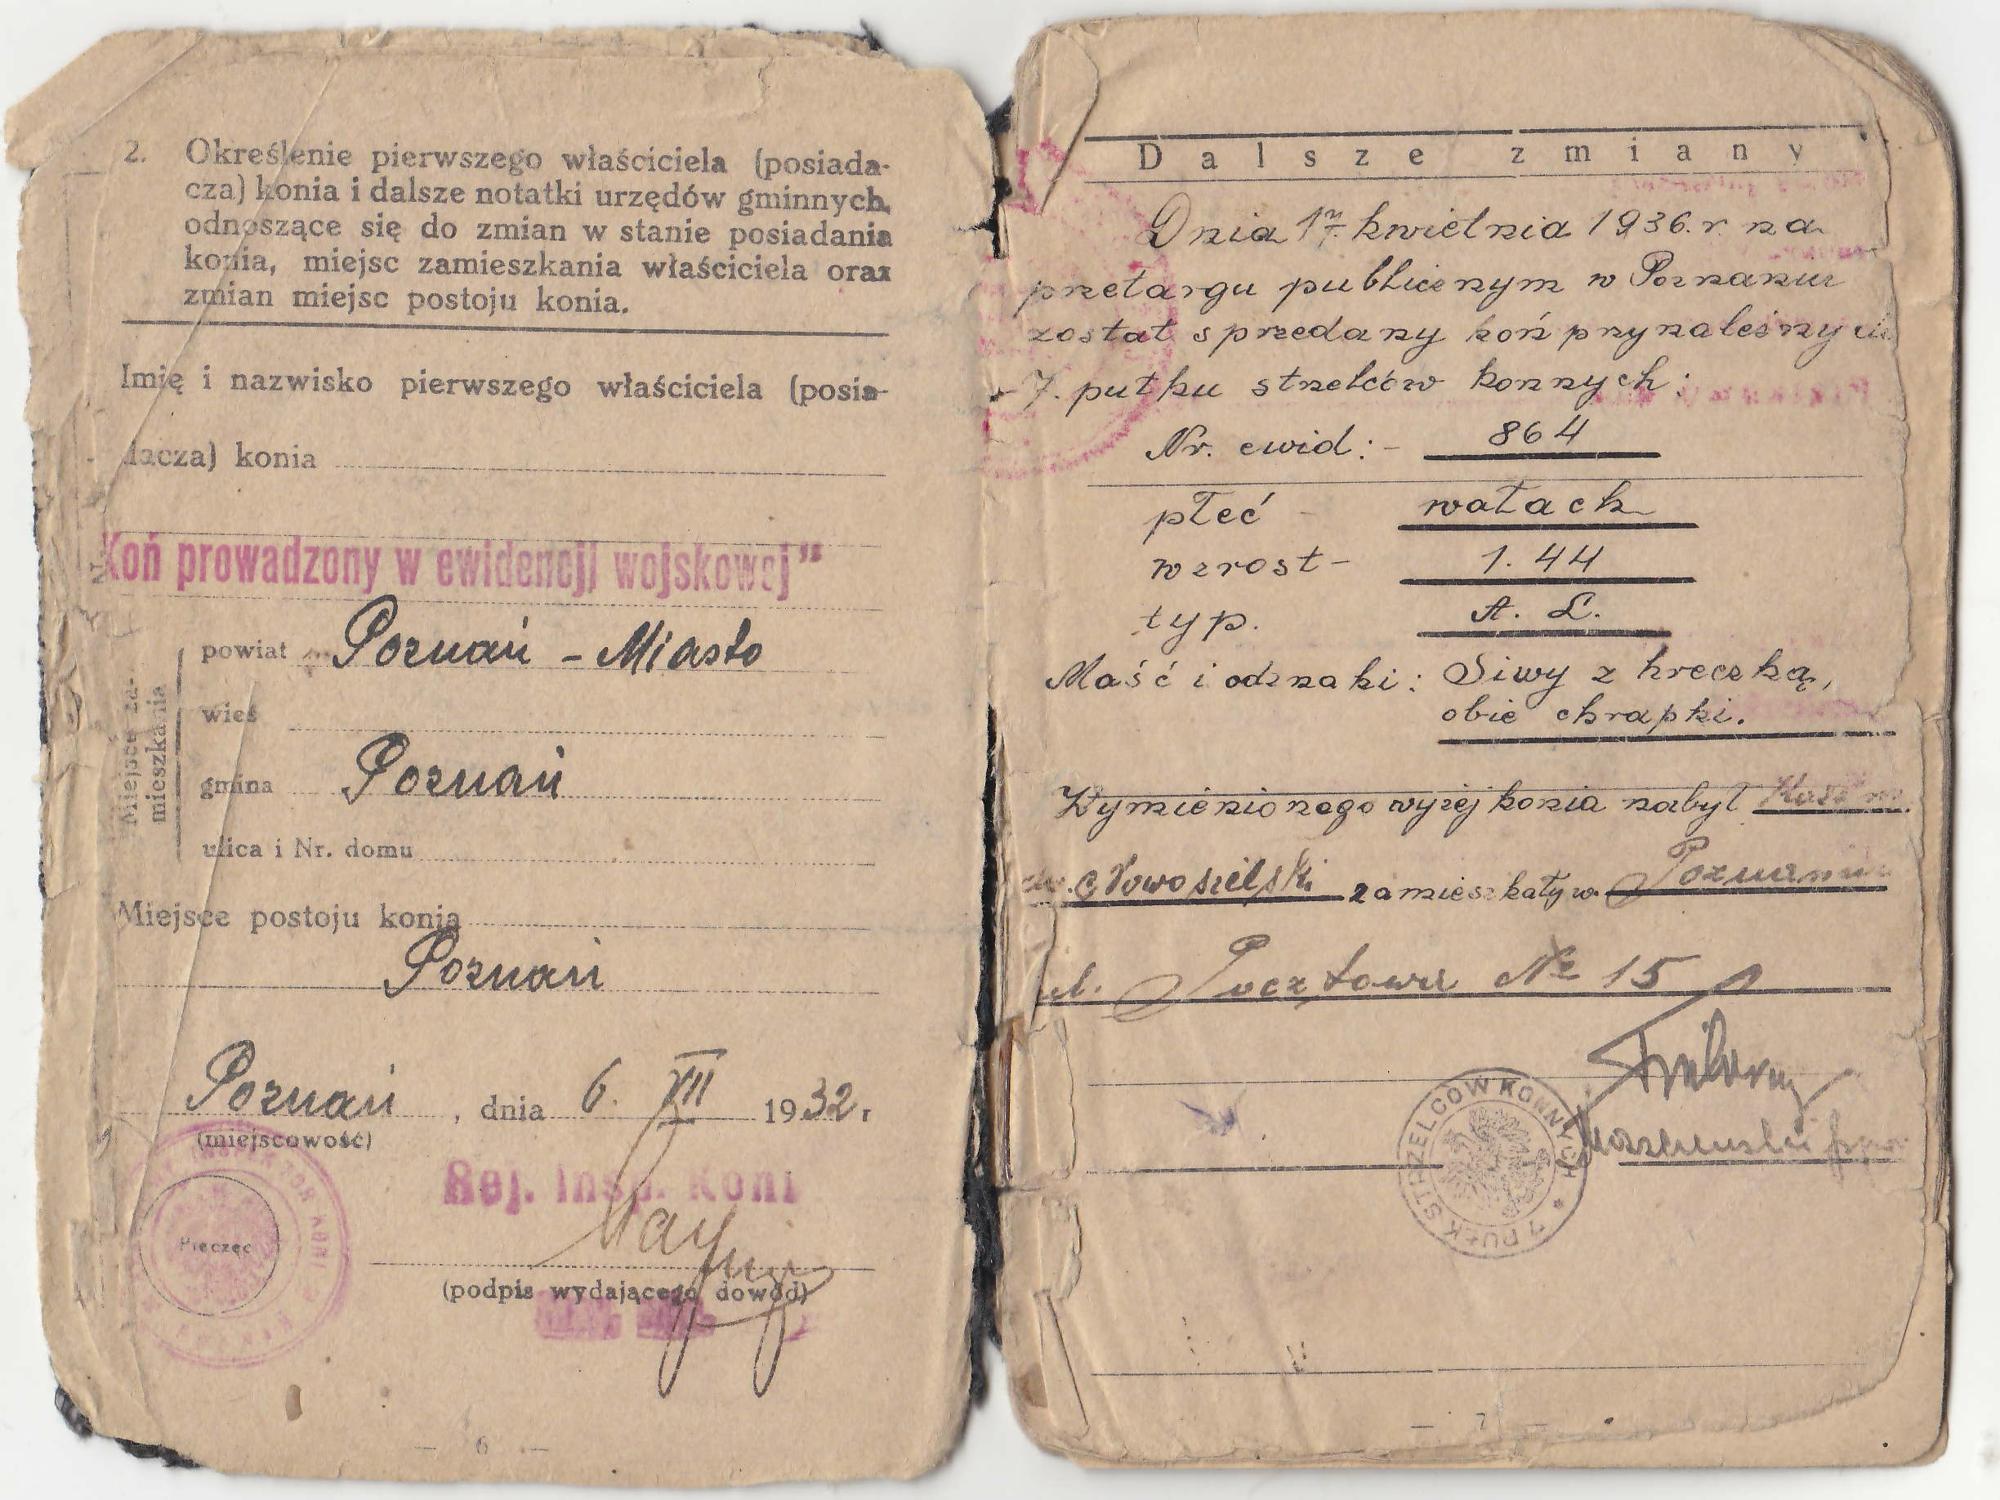 2. Określenie pierwszego właściciela (posiada-
cza) konia i dalsze notatki urzędów gminnych,
odnoszące się do zmian w stanie posiadania
konia, miejsc zamieszkania właściciela oraz
zmian miejsc postoju konia.
Imię i nazwisko pierwszego właściciela (posia-
dacza) konia
Koń prowadzony w ewidencji wojskowej"
Miejsce za-
mieszkania
powiat Poznań - Miasto
wieś
gmina Poznań
ulica i Nr. domu
Miejsce postoju konia
Poznań
Poznań, dnia 6. VII 1932 r.
(miejscowość)
Rej. Insp. Koni
Pieczęć
(podpis wydającego dowód)
— 6 —
Dalsze zmiany
Dnia 17. kwietnia 1936. r. na
przetargu publicznym w Poznaniu
został sprzedany koń przynależny
7. pułku strzelców konnych:
Nr. ewid: - 864
płeć - wałach
wzrost - 1.44
typ. A. L.
Maść i odznaki: Siwy z hreczką,
obie chrapki.
Wymienionego wyżej konia nabył
Nowosielski zamieszkały w Poznaniu
ul. Pocztowa № 15
7 PUŁK STRZELCÓW KONNYCH *
— 7 —